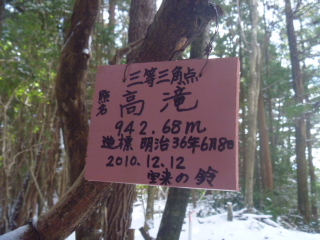 三等三角点
点名 高滝
942.68m
造標 明治36年6月8日
2010.12.12
実来の鈴